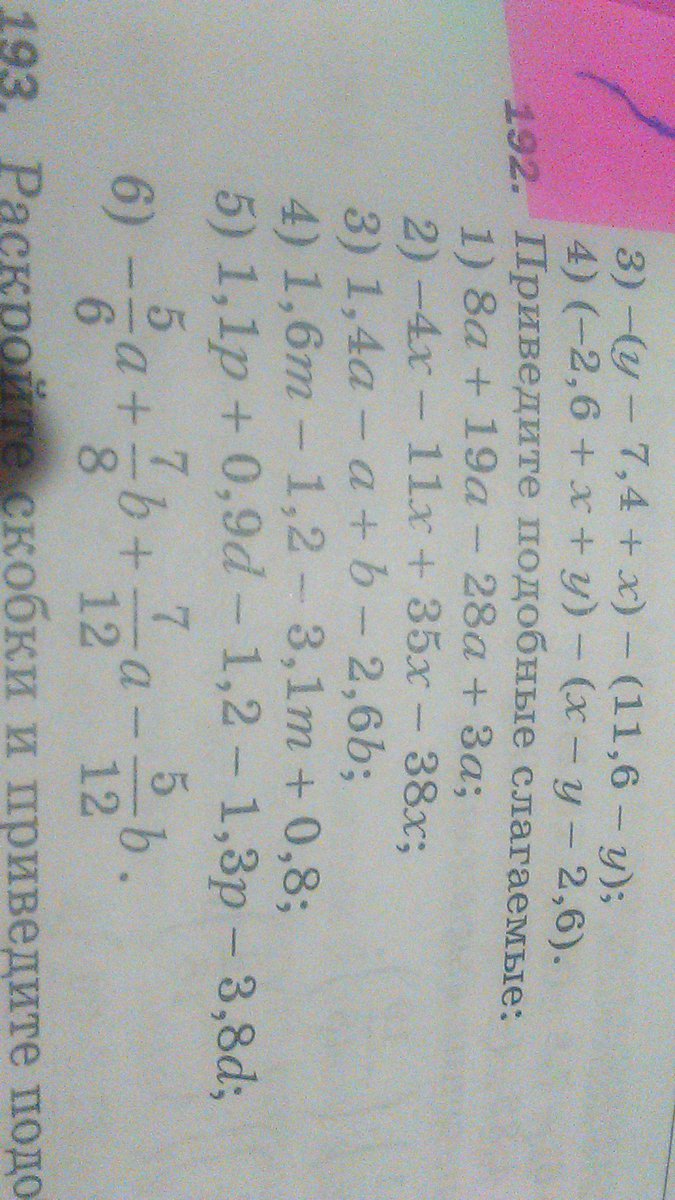 3) –(y – 7,4 + x) – (11,6 – y);
4) (–2,6 + x + y) – (x – y – 2,6).
192. Приведите подобные слагаемые:
1) 8a + 19a – 28a + 3a;
2) –4x – 11x + 35x – 38x;
3) 1,4a – a + b – 2,6b;
4) 1,6m – 1,2 – 3,1m + 0,8;
5) 1,1p + 0,9d – 1,2 – 1,3p – 3,8d;
6) –5/6a + 7/8b + 7/12a – 5/12b.
193. Раскройте скобки и приведите подо